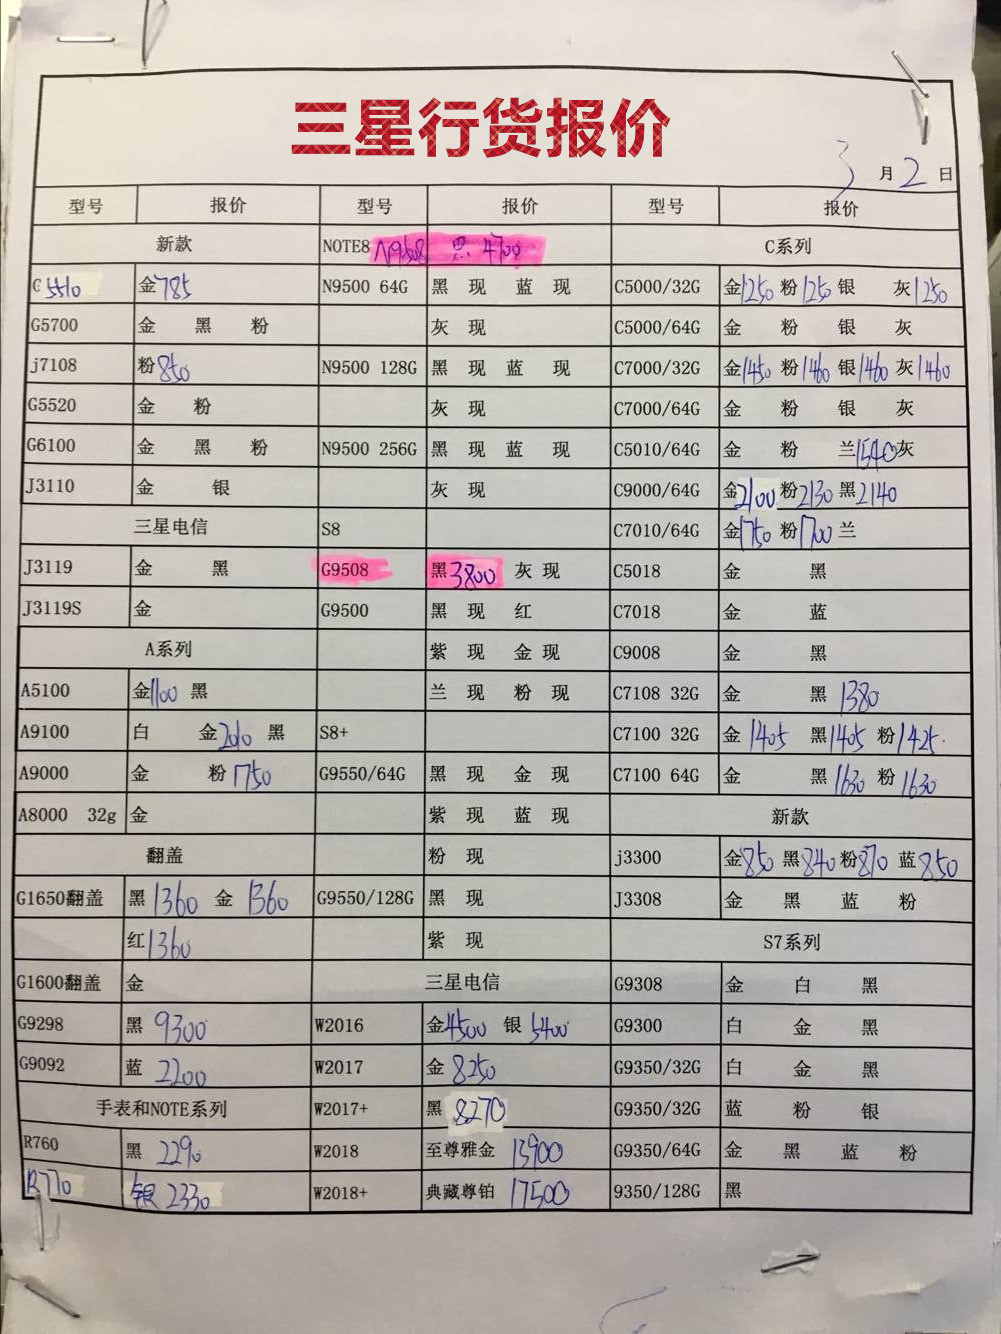 三星行货报价
3 月 2 日
型号 报价 型号 报价 型号 报价
新款 NOTE8 N9508 黑 4700 C系列
C 5510 金785 N9500 64G 黑 现 蓝 现 C5000/32G 金1250 粉1250 银 灰1250
G5700 金 黑 粉 灰 现 C5000/64G 金 粉 银 灰
j7108 粉850 N9500 128G 黑 现 蓝 现 C7000/32G 金1450 粉1460 银1460 灰1460
G5520 金 粉 灰 现 C7000/64G 金 粉 银 灰
G6100 金 黑 粉 N9500 256G 黑 现 蓝 现 C5010/64G 金 粉 兰1540灰
J3110 金 银 灰 现 C9000/64G 金2100 粉2130 黑2140
三星电信 S8 C7010/64G 金1750 粉1700 兰
J3119 金 黑 G9508 黑3800 灰 现 C5018 金 黑
J3119S 金 G9500 黑 现 红 C7018 金 蓝
A系列 紫 现 金 现 C9008 金 黑
A5100 金1100 黑 兰 现 粉 现 C7108 32G 金 黑 1380
A9100 白 金2010 黑 S8+ C7100 32G 金 1405 黑1405 粉1425
A9000 金 粉1750 G9550/64G 黑 现 金 现 C7100 64G 金 黑1630 粉1630
A8000 32g 金 紫 现 蓝 现 新款
翻盖 粉 现 j3300 金850 黑840 粉870 蓝850
G1650翻盖 黑 1360 金 1360 G9550/128G 黑 现 J3308 金 黑 蓝 粉
红1360 紫 现 S7系列
G1600翻盖 金 三星电信 G9308 金 白 黑
G9298 黑 9300 W2016 金4500 银 5400 G9300 白 金 黑
G9092 蓝 2200 W2017 金 8250 G9350/32G 白 金 黑
手表和NOTE系列 W2017+ 黑 8270 G9350/32G 蓝 粉 银
R760 黑 2290 W2018 至尊雅金 13900 G9350/64G 金 黑 蓝 粉
R770 银 2330 W2018+ 典藏尊铂 17500 9350/128G 黑